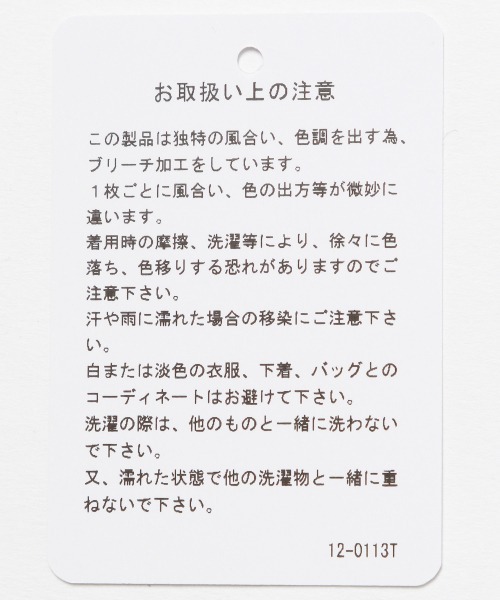 お取扱い上の注意
この製品は独特の風合い、色調を出す為、
ブリーチ加工をしています。
１枚ごとに風合い、色の出方等が微妙に
違います。
着用時の摩擦、洗濯等により、徐々に色
落ち、色移りする恐れがありますのでご
注意下さい。
汗や雨に濡れた場合の移染にご注意下さ
い。
白または淡色の衣服、下着、バッグとの
コーディネートはお避けて下さい。
洗濯の際は、他のものと一緒に洗わない
で下さい。
又、濡れた状態で他の洗濯物と一緒に重
ねないで下さい。
12-0113T